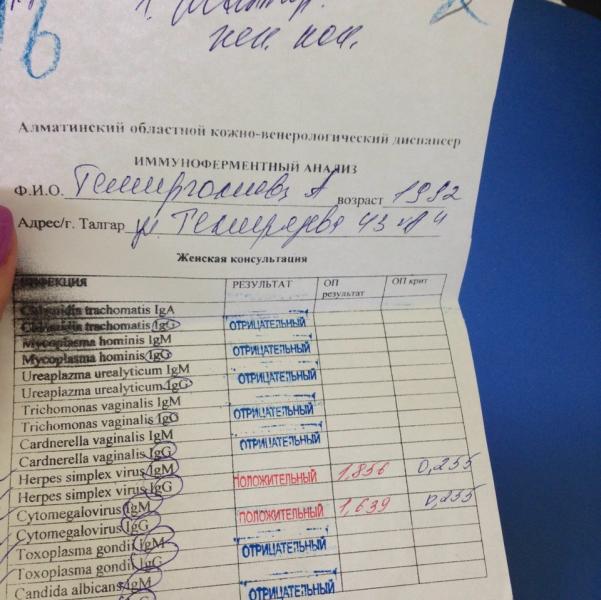 жен. кон.
Алматинский областной кожно-венерологический диспансер
ИММУНОФЕРМЕНТНЫЙ АНАЛИЗ
Ф.И.О. А возраст 1982
Адрес/г. Талгар ул. 43 4
Женская консультация
ИНФЕКЦИЯ РЕЗУЛЬТАТ ОП результат ОП крит
Chlamidia trachomatis IgA
Chlamidia trachomatis IgG ОТРИЦАТЕЛЬНЫЙ
Mycoplasma hominis IgM
Mycoplasma hominis IgG ОТРИЦАТЕЛЬНЫЙ
Ureaplazma urealyticum IgM
Ureaplazma urealyticum IgG ОТРИЦАТЕЛЬНЫЙ
Trichomonas vaginalis IgM
Trichomonas vaginalis IgG ОТРИЦАТЕЛЬНЫЙ
Cardnerella vaginalis IgM
Cardnerella vaginalis IgG ОТРИЦАТЕЛЬНЫЙ
Herpes simplex virus IgM
Herpes simplex virus IgG ПОЛОЖИТЕЛЬНЫЙ 1,856 0,255
Cytomegalovirus IgM
Cytomegalovirus IgG ПОЛОЖИТЕЛЬНЫЙ 1,639 0,255
Toxoplasma gondii IgM
Toxoplasma gondii IgG ОТРИЦАТЕЛЬНЫЙ
Candida albicans IgM
ОТРИЦАТЕЛЬНЫЙ